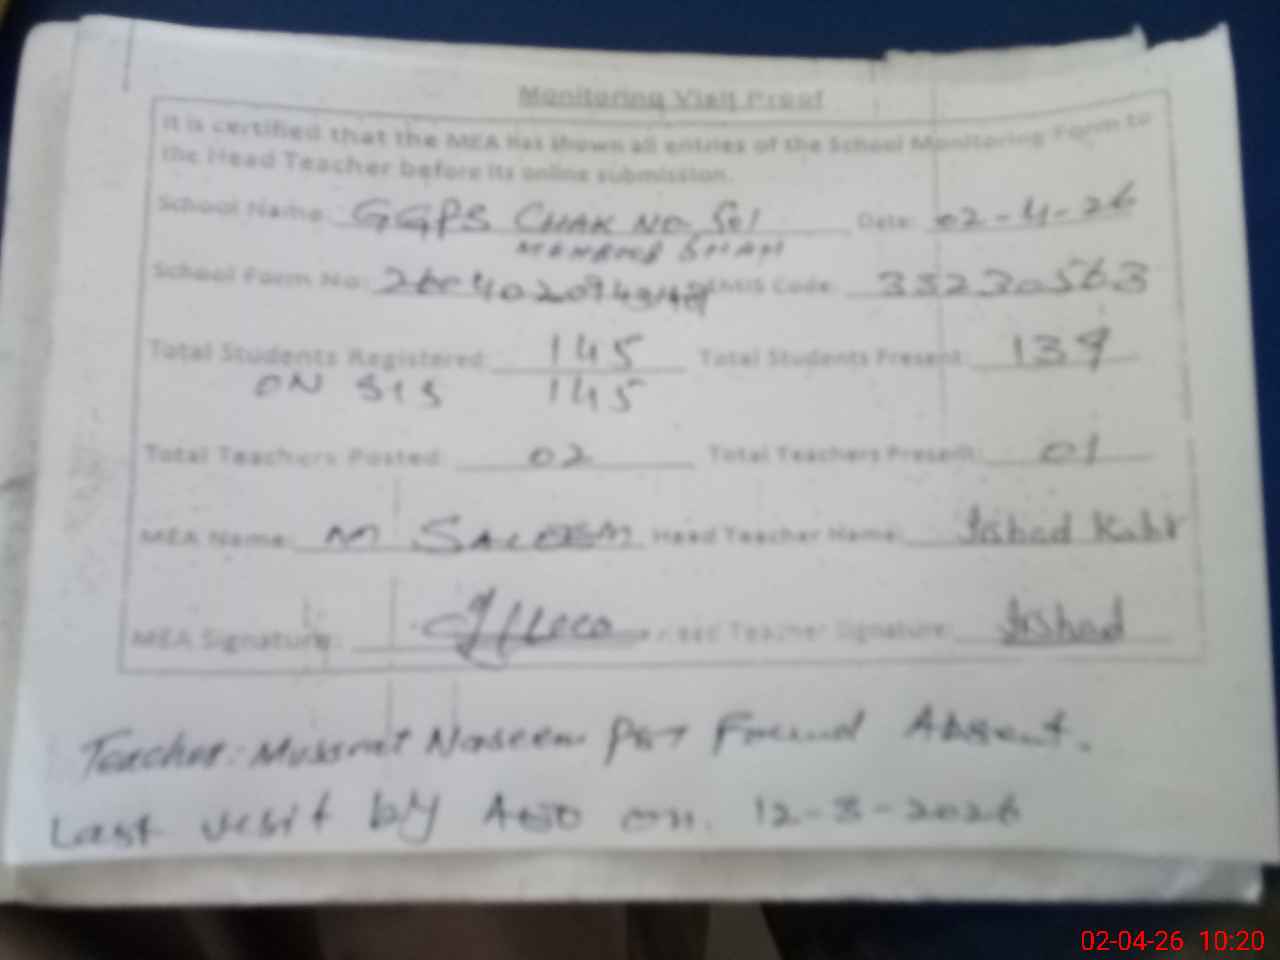 Monitoring Visit Proof
It is certified that the MEA has shown all entries of the School Monitoring Form to
the Head Teacher before its online submission.
School Name: GGPS CHAK NO 501 Date: 02-4-26
SHAH
School Form No: EMIS Code: 33230563
Total Students Registered: 145 Total Students Present: 139
ON SIS 145
Total Teachers Posted: 02 Total Teachers Present: 01
MEA Name: M SALEEM Head Teacher Name: Irshad
MEA Signature: Head Teacher Signature: Irshad
Teacher: Mussrat Naseem PST Found Absent.
Last visit by AEO on. 12-3-2026
02-04-26 10:20